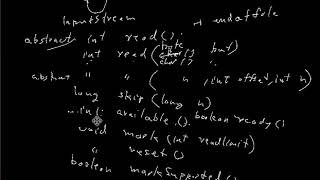 InputStream
-1 endoffile
abstract int read();
int read(byte char[] buf)
abstract " " ( " , int offset, int n)
long skip (long n)
int available(). boolean ready()
void mark (int readlimit)
" reset()
boolean markSupported()